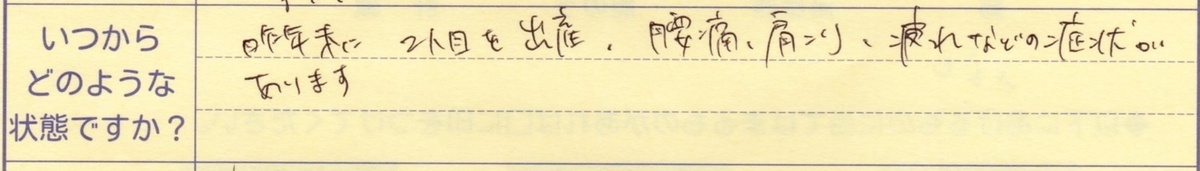 いつから
どのような
状態ですか?
昨年末に 2人目を出産、腰痛、肩こり、疲れなどの症状が
あります